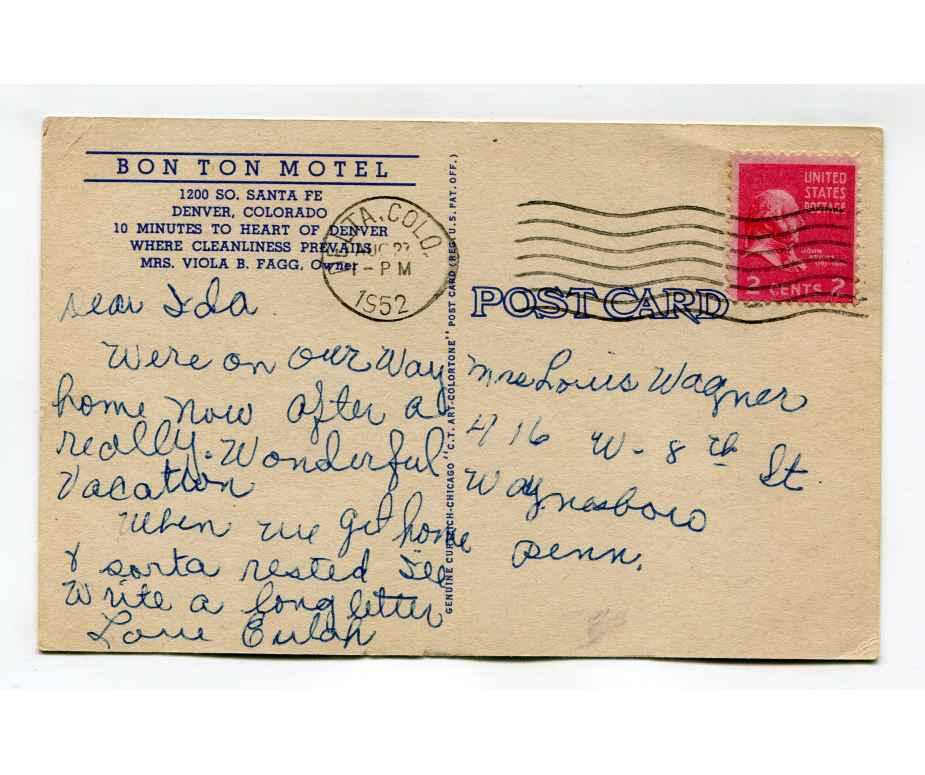 BON TON MOTEL
1200 SO. SANTA FE
DENVER, COLORADO
10 MINUTES TO HEART OF DENVER
WHERE CLEANLINESS PREVAILS
MRS. VIOLA B. FAGG, Owner
COLO.
AUG
PM
1952
UNITED
STATES
POSTAGE
JOHN
2 CENTS 2
POST CARD
Dear Ida
We're on our way
home now after a
really wonderful
Vacation
When we get home
& sorta rested I'll
Write a long letter
Love Eulah
GENUINE CURTEICH-CHICAGO "C.T. ART-COLORTONE" POST CARD (REG. U.S. PAT. OFF.)
Mrs Louis Wagner
416 W-8th St
Waynesboro
Penn.